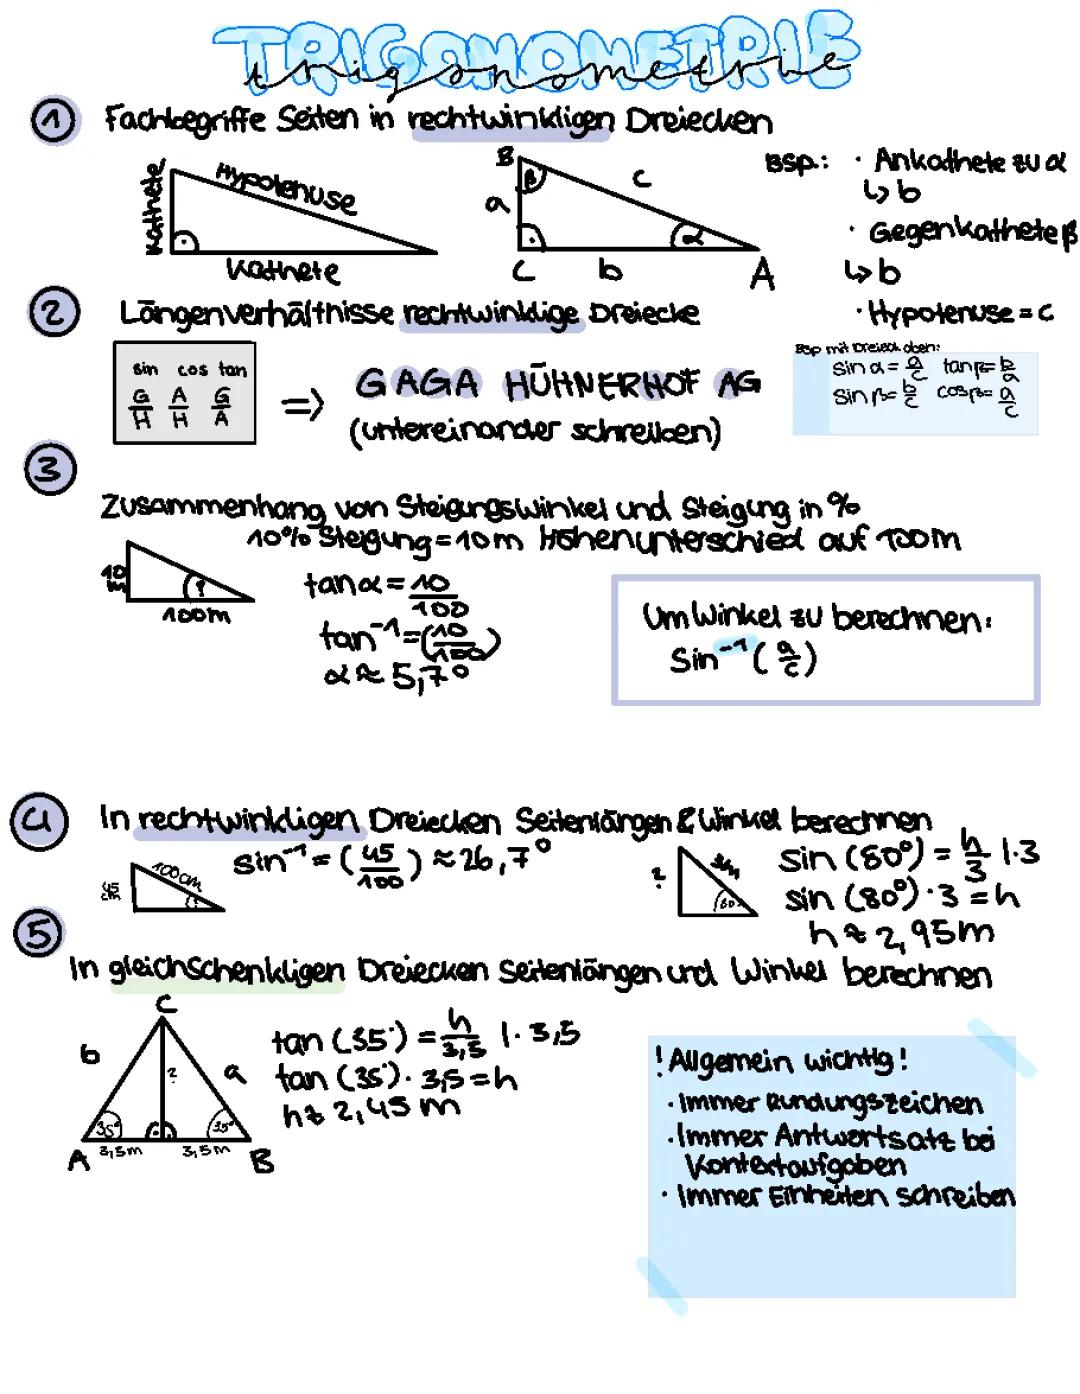 TRIGONOMETRIE
trigonometrie
1 Fachbegriffe Seiten in rechtwinkligen Dreiecken
Kathete
Hypotenuse
Kathete
B
β
a
c
α
C
b
A
BSP.: · Ankathete zu α
↳ b
· Gegenkathete β
↳ b
· Hypotenuse = c
2 Längenverhältnisse rechtwinklige Dreiecke
sin cos tan
G/H A/H G/A
=> GAGA HÜHNERHOF AG
(untereinander schreiben)
Bsp mit Dreieck oben:
sin α = a/c tan β = b/a
sin β = b/c cos β = a/c
3
Zusammenhang von Steigungswinkel und Steigung in %
10% Steigung = 10m Höhenunterschied auf 100m
10 m
?
100m
tan α = 10/100
tan⁻¹ = (10/100)
α ≈ 5,7°
Um Winkel zu berechnen:
Sin⁻¹ (a/c)
4 In rechtwinkligen Dreiecken Seitenlängen & Winkel berechnen
45 cm
100cm
?
sin⁻¹ = (45/100) ≈ 26,7°
?
80°
sin (80°) = h/3 | · 3
sin (80°) · 3 = h
h ≈ 2,95m
5
In gleichschenkligen Dreiecken Seitenlängen und Winkel berechnen
C
b
?
a
35°
35°
A
3,5m
3,5m
B
tan (35°) = h/3,5 | · 3,5
tan (35°) · 3,5 = h
h ≈ 2,45 m
! Allgemein wichtig!
· Immer Rundungszeichen
· Immer Antwortsatz bei
Kontextaufgaben
· Immer Einheiten schreiben